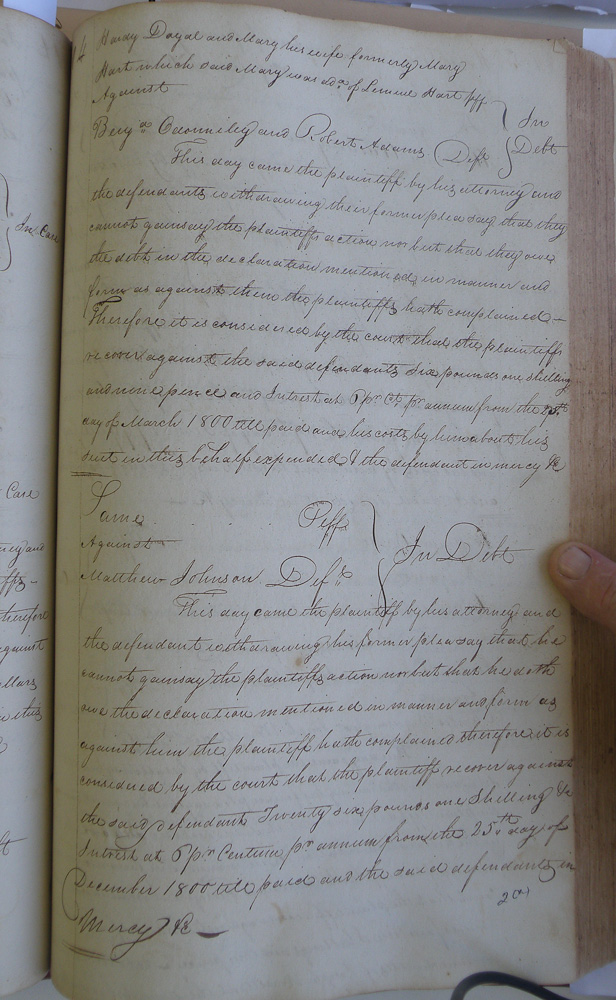 Hardy Doyal and Mary his wife formerly Mary
Hart which said Mary was adx of Lemuel Hart plf
Against
In Debt
Benja and Robert Adams Defts
This day came the plaintiff by his attorney and
the defendants withdrawing their former plea say that they
cannot gainsay the plaintiffs action nor but that they owe
the debt in the declaration mentioned in manner and
form as against them the plaintiffs hath complained —
Therefore it is considered by the court that the plaintiffs
recover against the said defendants Six pounds one shilling
and nine pence and Intrest at 6 pr Ct pr annum from the 25th
day of March 1800 till paid and his costs by him about his
suit in this behalf expended & the defendant in mercy &c
Same Plff
In Debt
Against
Matthew Johnson Deft
This day came the plaintiff by his attorney and
the defendant withdrawing his former plea say that he
cannot gainsay the plaintiffs action nor but that he doth
owe the declaration mentioned in manner and form as
against him the plaintiff hath complained therefore it is
considered by the court that the plaintiff recover against
the said defendant Twenty six pounds one Shilling &c
Intrest at 6 pr Centum pr annum from the 25th day of
December 1800 till paid and the said defendant in
Mercy &c —
In Case
Case
ney and
herefore
against